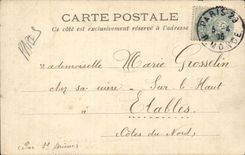 CARTE POSTALE
Ce côté est exclusivement réservé à l'adresse
PARIS
Mademoiselle Marie Grosselin
chez sa mère - Sur le Haut
à Etables
Côtes du Nord